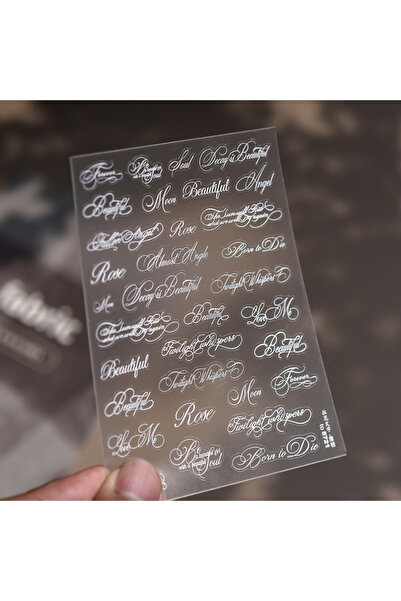 Forever
Soul
Decay is Beautiful
Beautiful
Moon
Beautiful
Angel
Fallen Angel
Rose
Rose
Almost Angle
Born to Die
Moon
Decay is Beautiful
Twilight Whispers
Beautiful
Love Me
Beautiful
Twilight whispers
Beautiful
Twilight Whispers
Moon
Forever
Beautiful
Rose
Twilight whispers
Love Me
Soul
Born to Die
fabric